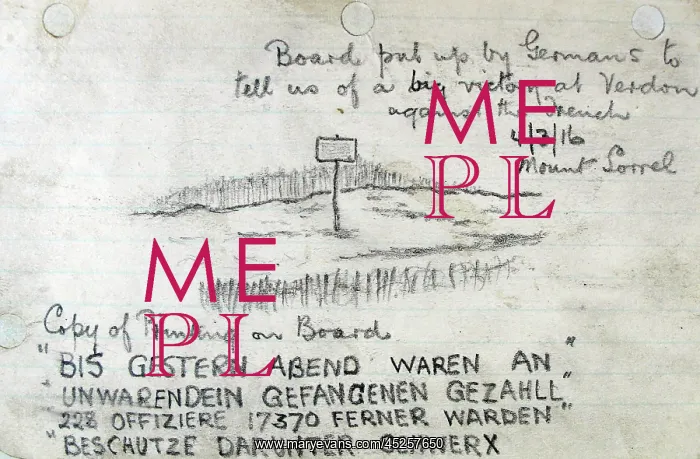 Board put up by Germans to
tell us of a big victory at Verdon
against the French
4/3/16
Mount Sorrel
ME
PL
ME
PL
Copy of Printing on Board
"BIS GESTERN ABEND WAREN AN"
"UNWARENDEIN GEFANGENEN GEZAHLL"
"228 OFFIZIERE 17370 FERNER WARDEN"
"BESCHUTZE DARUNTER SCHWERX
www.maryevans.com/45257650